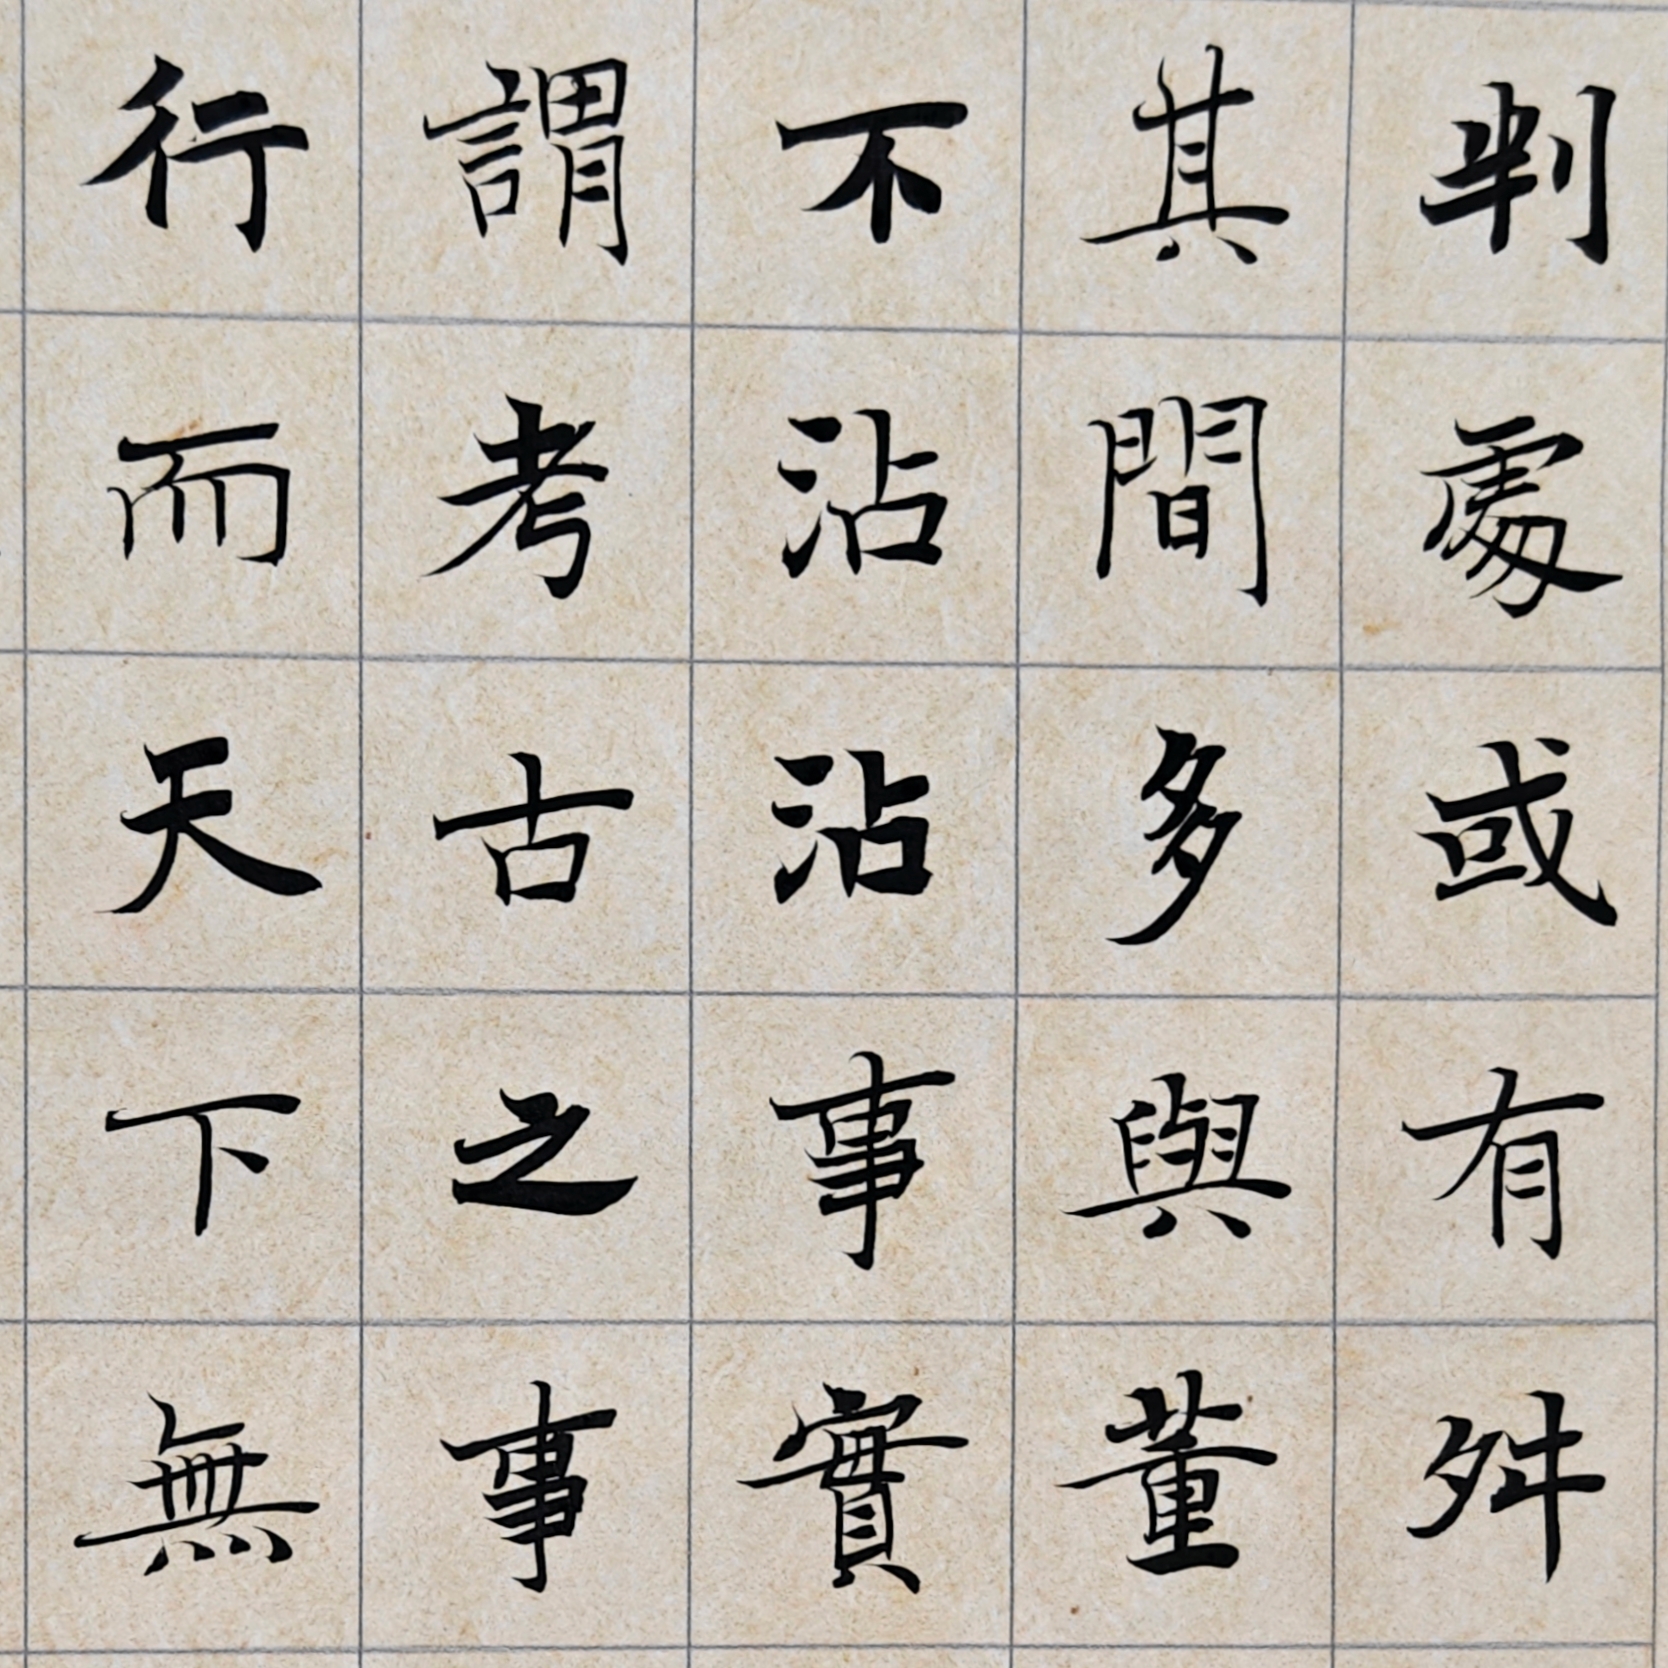 判處或有舛
其間多與董
不沾沾事實
謂考古之事
行而天下無